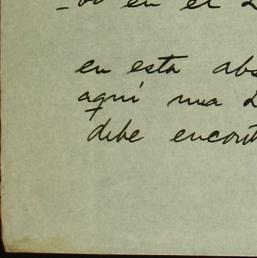 en el
en esta abs
aquí una
debe encont